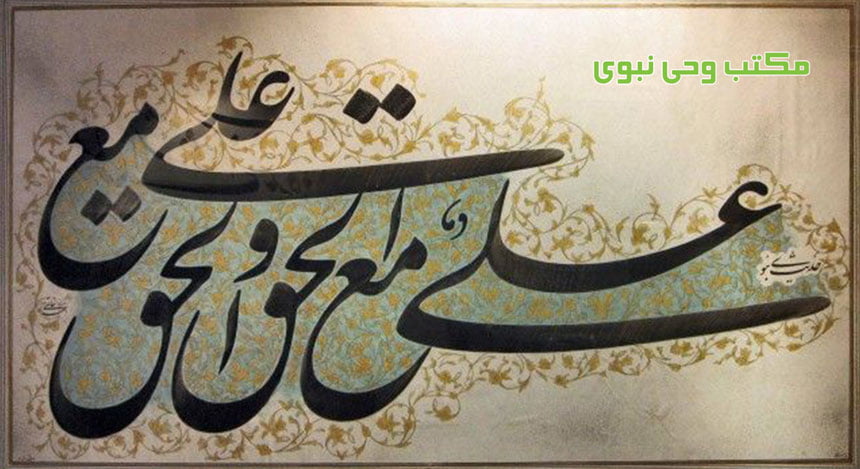 مکتب وحی نبوی
حدیث نبوی
علی مع الحق و الحق مع علی